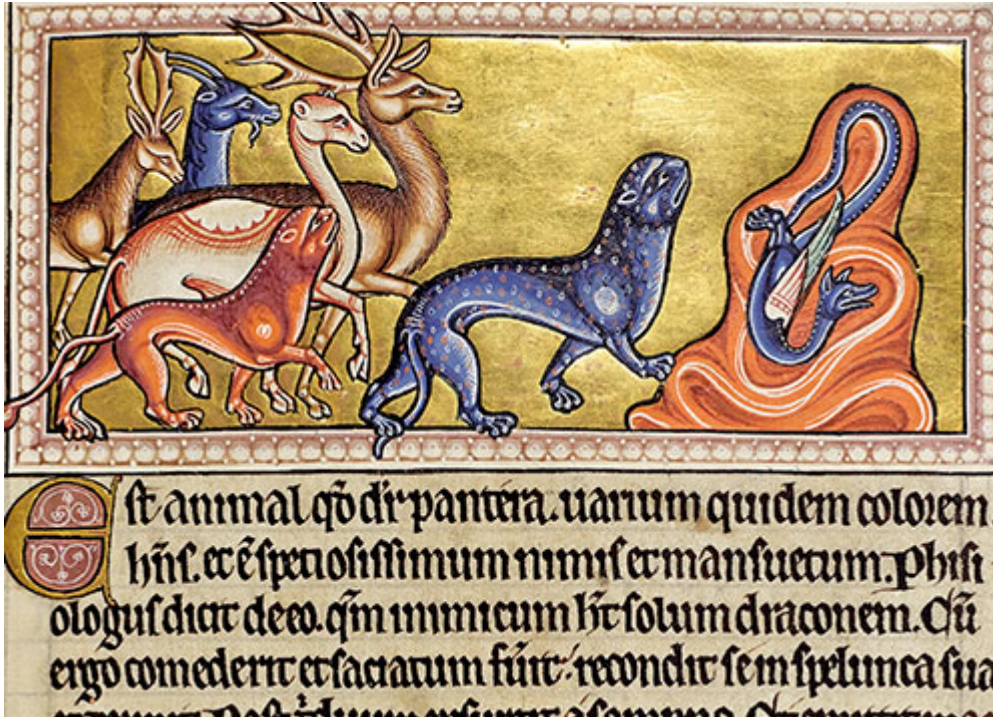 Est animal qd̄ dr̄ pantera. uarium quidem colorem
hn̄s. et ē speciosissimum nimis et mansuetum. Phisi
ologus dicit de eo. qm̄ inimicum ht̄ solum draconem. Cū
ergo comederit et saciatum fūit: recondit se in spelunca sua